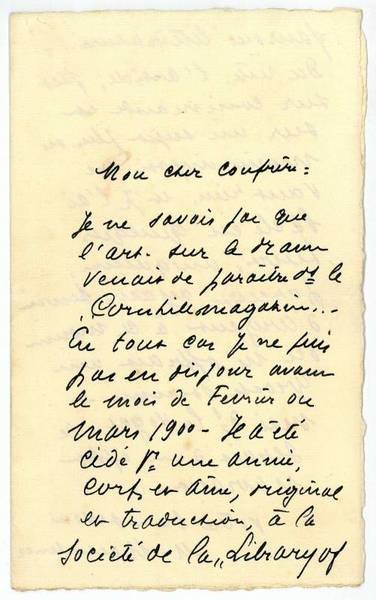 Mon cher confrère:
Je ne savais pas que
l'art. sur le drame
venait de paraître ds le
„Cornhill magazin...
En tout cas je ne puis
pas en disposer avant
le mois de Fevrier ou
Mars 1900 - Il a été
cédé pr une année,
corps et âme, original
et traduction, à la
Société de la „Library of